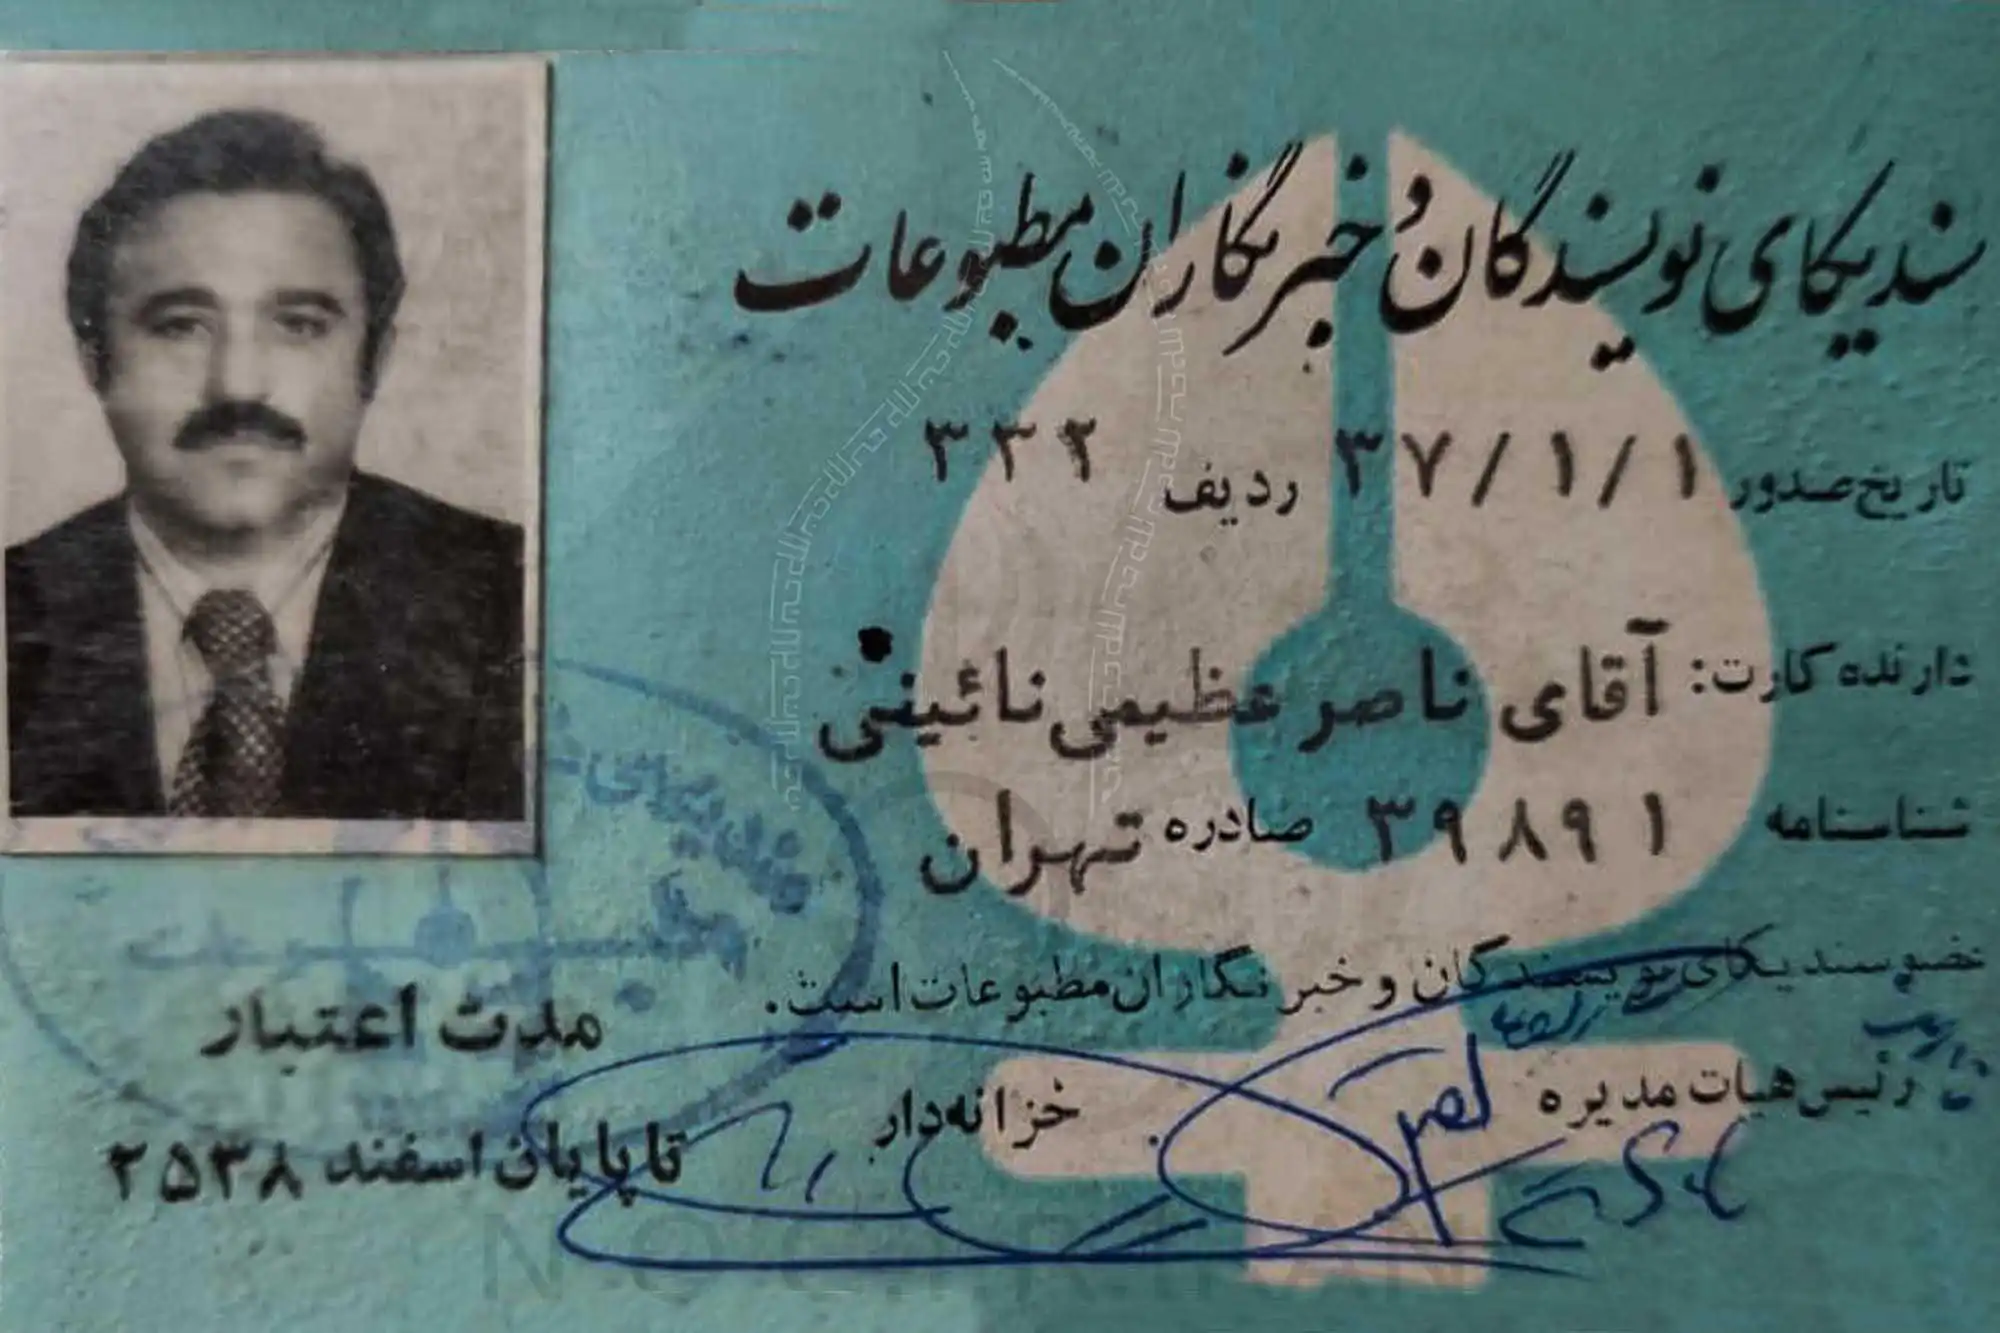 سندیکای نویسندگان و خبرنگاران مطبوعات
تاریخ صدور ۳۷/۱/۱ ردیف ۳۳۲
دارنده کارت: آقای ناصر عظیمی نائینی
شناسنامه ۳۹۸۹۱ صادره تهران
عضو سندیکای نویسندگان و خبرنگاران مطبوعات است.
رئیس هیات مدیره
خزانه‌دار
مدت اعتبار
تا پایان اسفند ۲۵۳۸
N.O.C.I.R.IRAN